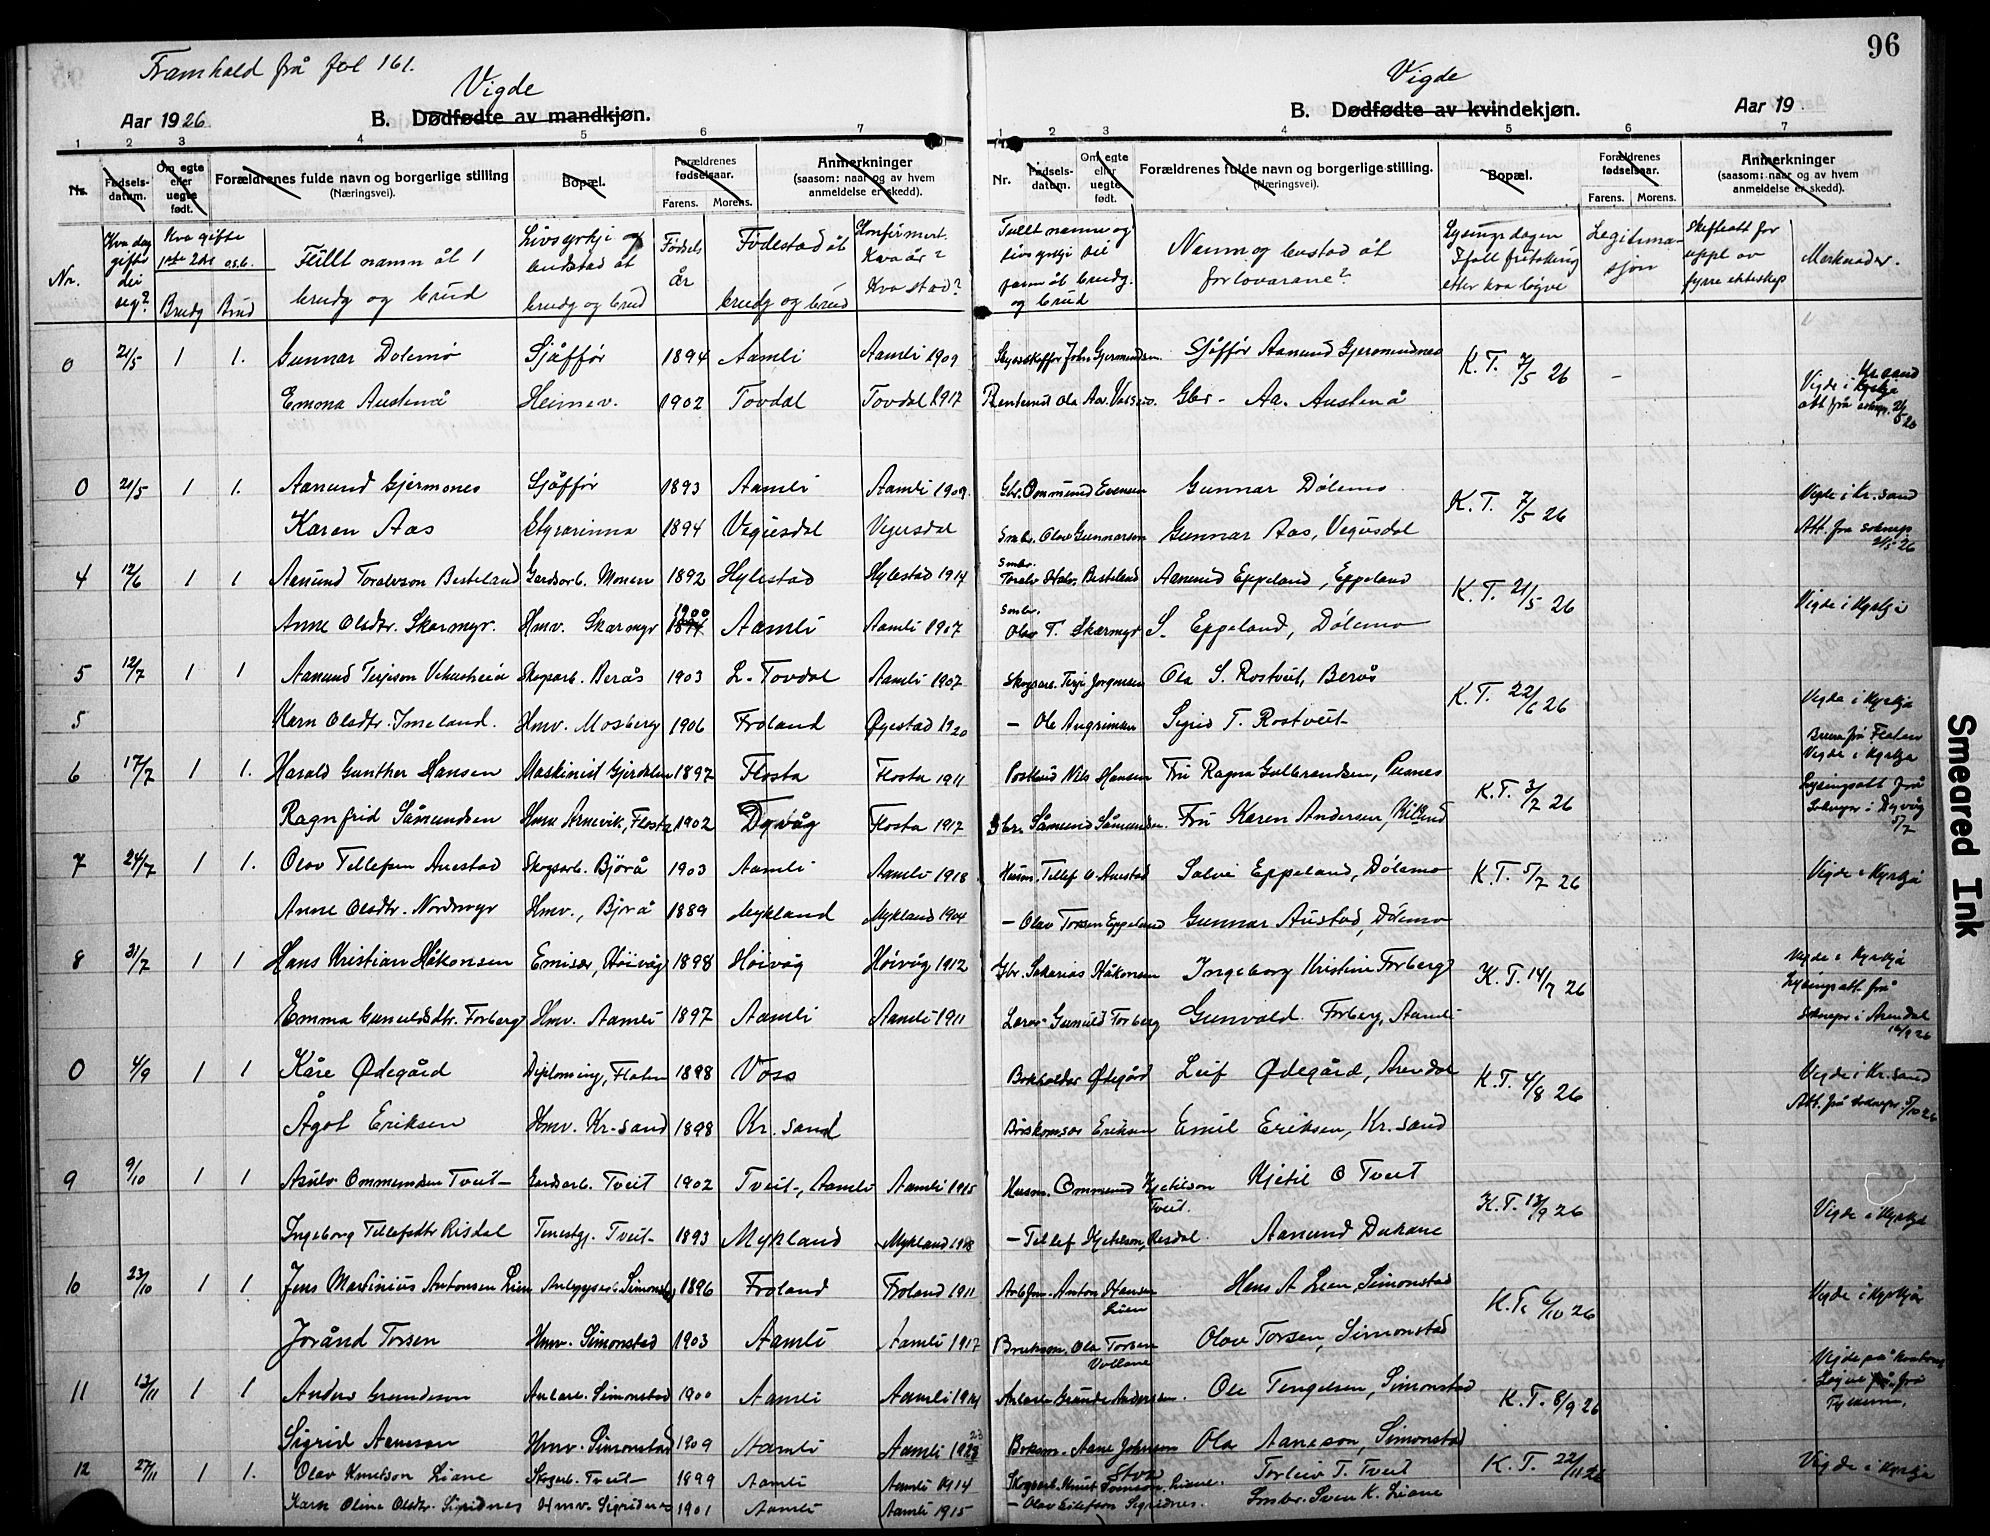 96
Framhald frå fol 161.
Vigde
Vigde
Aar 1926.
B. Dødfødte av mandkjøn.
B. Dødfødte av kvindekjøn.
Aar 19
1 2 3 4 5 6 7
1 2 3 4 5 6 7
Nr. Fødsels-datum. Om egte eller uegte født. Forældrenes fulde navn og borgerlige stilling (Næringsvei). Bopæl. Forældrenes fødselsaar. Farens. Morens. Anmerkninger (saasom: naar og av hvem anmeldelse er skedd).
Nr. Fødsels-datum. Om egte eller uegte født. Forældrenes fulde navn og borgerlige stilling (Næringsvei). Bopæl. Forældrenes fødselsaar. Farens. Morens. Anmerkninger (saasom: naar og av hvem anmeldelse er skedd).
Nr. Kva dag gifte dei seg? Kva gifte 1ste 2dre o.s.b. Brudg Brud Fullt namn åt brudg og brud Livsyrkje og bustad åt brudg og brud Fødselsår Fødestad åt brudg og brud Konfirmert. Kva år? Kva stad?
Fullt namn og livsyrkje til faren åt brudg. og brud Namn og bustad åt forlovarane? Lysingsdagen Ifall fritaking etter kva løyve Legitimasjon Skifteatt for uppl. av fyrre ekteskap Merknader.
0 21/5 1 1. Gunnar Dølemo Sjåffør 1894 Aamli Aamli 1909 Gjermundsen Sjåffør Aanund Gjermundnes K. T. 7/5 26 - Vigde i Kr.sand Kyrkja
Emma Austenå Heimev. 1902 Tovdal Tovdal 1917 Rentenist Ola Aa. Gbr - Aa. Austenå att frå 21/5 26
0 21/5 1 1. Aanund Gjermones Sjåffør 1893 Aamli Aamli 1909. Gbr. Ommund Evensen Gunnar Dølemo K. T. 7/5 26 Vigde i Kr.sand
Karen Aas Styrarinna 1894 Vegusdal Vegusdal Smbr. Olav Gunnarson Gunnar Aas, Vegusdal Att. fra sokneps. 21/5 26
4 12/6 1 1 Aanund Toralvson Besteland Gardsarb. Monen 1892 Hylestad Hylestad 1914 Smbr. Toralv Halv. Besteland Aanund Eppeland, Eppeland K. T. 21/5 26 Vigde i kyrkje
Anne Olsdtr. Skarmyr. Hmv. Skarmyr 1900 Aamli Aamli 1907 Smbr. Olav T. Skarmyr S. Eppeland, Dølemo
5 12/7 1 1 Aanund Terjeson Vehusheia Skogsarb. Berås 1903 L. Tovdal Aamli 1907 Skogsarb. Terje Jorgensen Ola S. Rostveit, Berås K. T. 22/6 26 Vigde i Kyrkja
5 Karn Olsdtr. Imeland. Hmv. Mosberg 1906 Froland Øyestad 1920 - Ole Angrimsen Sigrid T. Rostveit
6 17/7 1 1. Harald Gunther Hansen Maskinist Gjerdalen 1897 Flosta Flosta 1911 Postbud Nils Hansen Fru Ragna Gulbrandsen, Pusnes K.T. 3/7 26 Vigde i Kyrkja
Ragnfrid Såmundsen Hmv Arnevik, Flosta 1902 Dyvåg Flosta 1917 Gbr. Såmund Såmundsen. Fru Karen Andersen, Lysingsatt frå Sokneps i Dyvåg 5/7
7 24/7 1 1. Olav Tellefsen Austad Skogsarb. Björå 1903 Aamli Aamli 1918 Husm. Tellef O. Austad Salve Eppeland, Dölemo K.T. 5/7 26 Vigde i Kyrkja
Anne Olsdtr. Nordmyr Hmv., Björå 1889 Mykland Mykland 1904 - Olav Torsen Eppeland Gunnar Austad, Dölemo
8 31/7 1 1 Hans Kristian Håkonsen Emisær, Höivåg 1898 Höivåg Höivåg 1912 Gbr. Sakarias Håkonsen Ingeborg Kristine Forberg K.T. 14/7 26 Vigde i Kyrkja Lysingsatt frå
Emma Gunvaldsdtr. Forberg Hmv. Aamli 1897 Aamli Aamli 1911 Lærar Gunvald Forberg Gunvald Forberg, Aamli Sokneps i Arendal
0 4/9 1 1 Kåre Ødegård Flaten 1898 Voss Bokholdar Ødegård Leif Ødegård, Arendal K.T. 4/8 26 Vigde i Kr.sand
Ågot Eriksen Hmv. Kr.sand 1898 Kr.sand Eriksen Emil Eriksen, Kr.sand Att. frå sokneps 5/10 26
9 9/10 1 1 Asulv Ommundsen Tveit Gardsarb. Tveit 1902 Tveit, Aamli Aamli 1915 Husm. Ommund Kjetilson Tveit. Kjetil O Tveit K.T. 13/9 26 Vigde i Kyrkja
Ingeborg Tellefsdtr Risdal Tenestgj. Tveit 1893 Mykland Mykland - Tellef Kjetilson, Risdal Aanund Duhane
10 23/10 1 1 Jens Martinius Antonsen Lien Anleggsarb. Simonstad 1896 Froland Froland 1911 Arbfm. Anton Hansen Lien Hans A Lien, Simonstad K.T. 6/10 26 Vigde i Kyrkja
Jorånd Torsen Hmv. Simonstad 1903 Aamli Aamli 1917 Bruksm. Ola Torsen Vollane Olav Torsen, Simonstad
11 13/11 1 1 Anders Grundeson Anlarb. Simonstad 1900 Aamli Aamli 1914 Anlarb. Grunde Andersen. Ole Tengelsen, Simonstad K.T. 8/9 26 Vigde på kontoret Løyve frå Fylkesm.
Sigrid Aaneson Hmv. Simonstad 1909 Aamli Aamli 1923 Boksm. Aane Johnsen Ola Aaneson, Simonstad
12 27/11 1 1. Olav Knutson Liane Skogarb. Tveit 1899 Aamli Aamli 1914 Skogsarb. Knut Svenson Liane. Torleiv T. Tveit K.T. 22/11 26 Vigde i Kyrkja
Karn Oline Olsdtr. Sigridnes Hmv. Sigridnes 1901 Aamli Aamli 1915 - Olav Eilefson Sigridnes. Smbr. Sven K. Liane
Smeared Ink